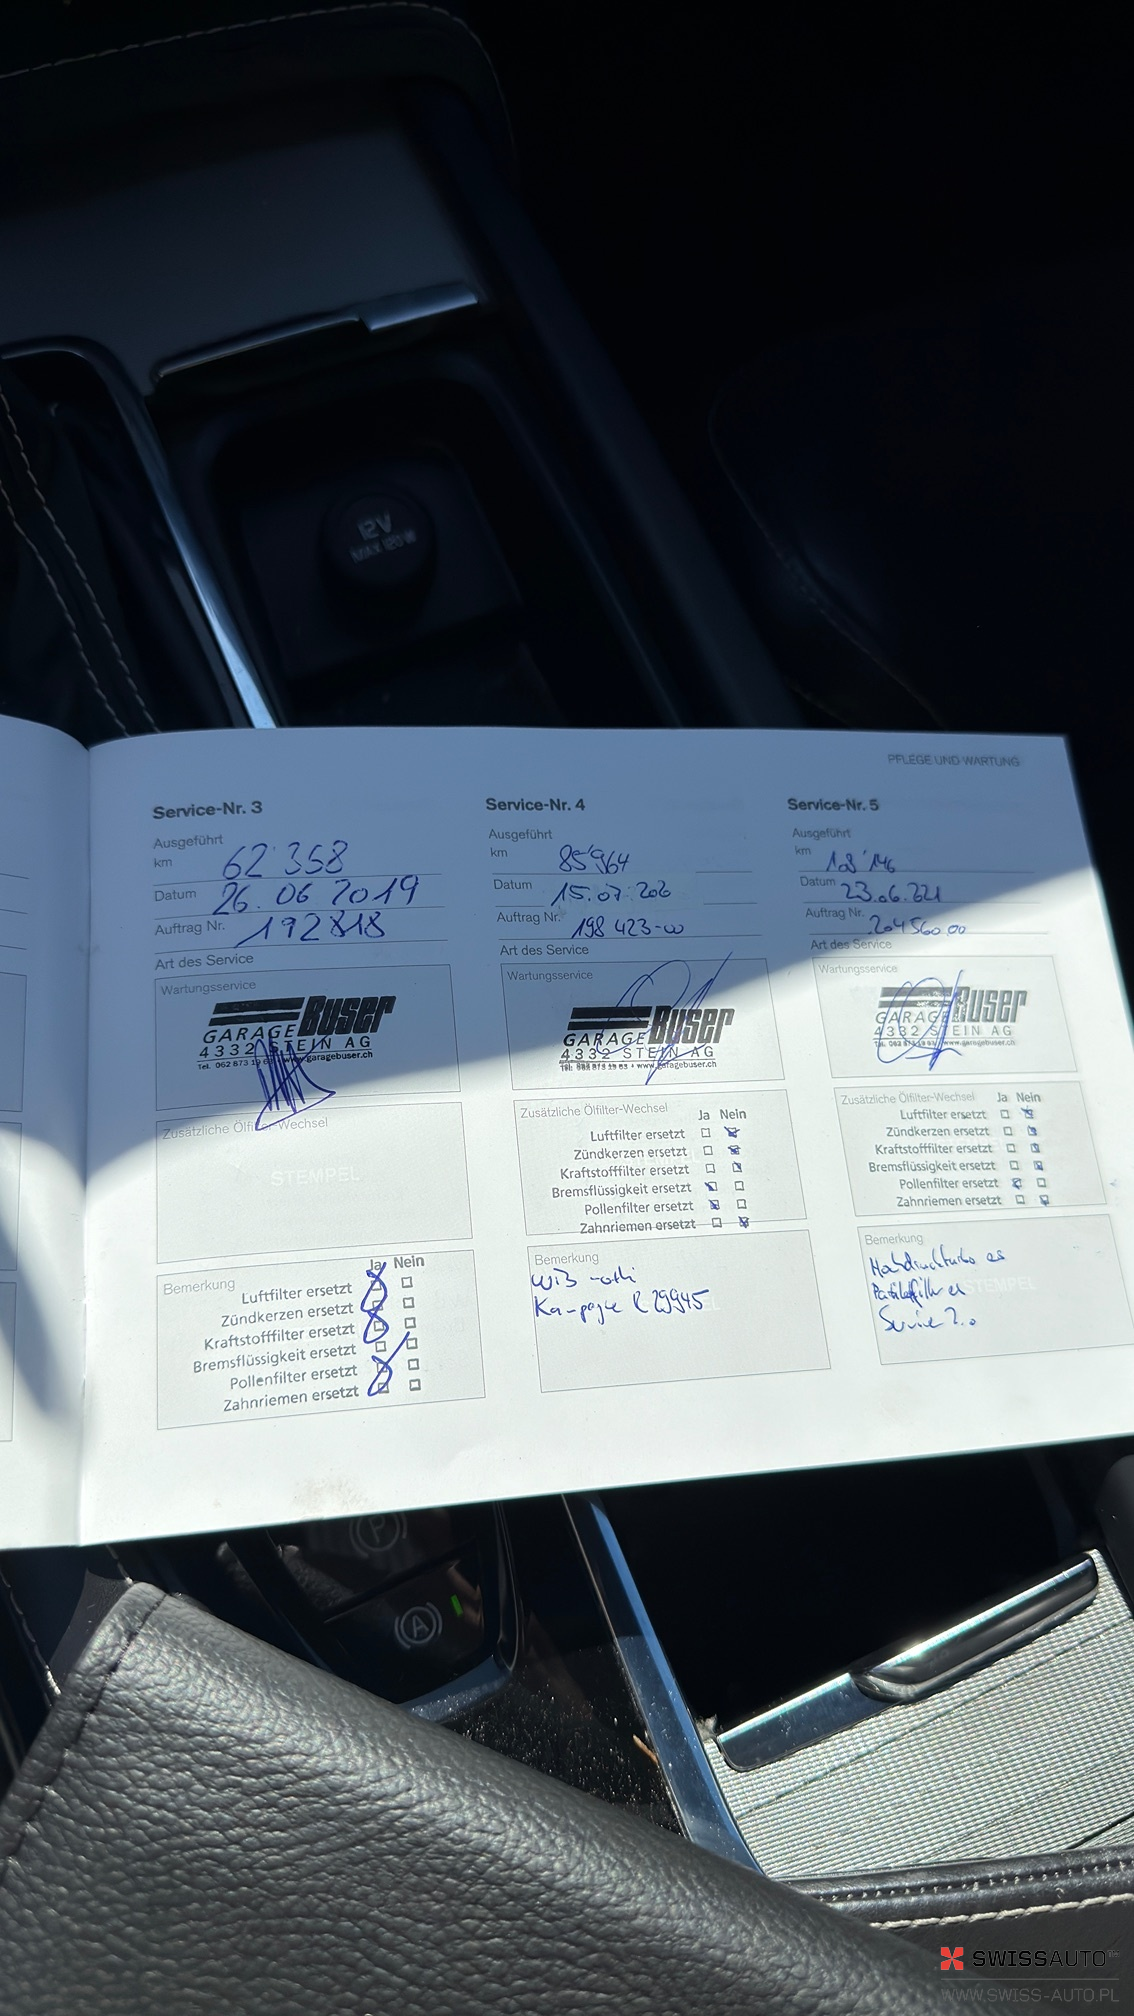 12V
MAX 120W
PFLEGE UND WARTUNG
Service-Nr. 3
Ausgeführt
km 62'358
Datum 26.06 2019
Auftrag Nr. 192818
Art des Service
Wartungsservice
GARAGE BUSER
4332 STEIN AG
Tel. 062 873 19 63 • www.garagebuser.ch
Zusätzliche Ölfilter-Wechsel
STEMPEL
Bemerkung
Ja Nein
Luftfilter ersetzt
Zündkerzen ersetzt
Kraftstofffilter ersetzt
Bremsflüssigkeit ersetzt
Pollenfilter ersetzt
Zahnriemen ersetzt
Service-Nr. 4
Ausgeführt
km 85'964
Datum 15.07.202
Auftrag Nr. 198 423-00
Art des Service
Wartungsservice
GARAGE BUSER
4332 STEIN AG
Tel. 062 873 19 63 • www.garagebuser.ch
Zusätzliche Ölfilter-Wechsel
Ja Nein
Luftfilter ersetzt
Zündkerzen ersetzt
Kraftstofffilter ersetzt
Bremsflüssigkeit ersetzt
Pollenfilter ersetzt
Zahnriemen ersetzt
Bemerkung
Kampagne R29945
Service-Nr. 5
Ausgeführt
km 108'146
Datum 23.06.221
Auftrag Nr. 204560.00
Art des Service
Wartungsservice
GARAGE BUSER
4332 STEIN AG
Tel. 062 873 19 63 • www.garagebuser.ch
Zusätzliche Ölfilter-Wechsel
Ja Nein
Luftfilter ersetzt
Zündkerzen ersetzt
Kraftstofffilter ersetzt
Bremsflüssigkeit ersetzt
Pollenfilter ersetzt
Zahnriemen ersetzt
Bemerkung
STEMPEL
Service 2.0
P
A
SWISSAUTO™
WWW.SWISS-AUTO.PL